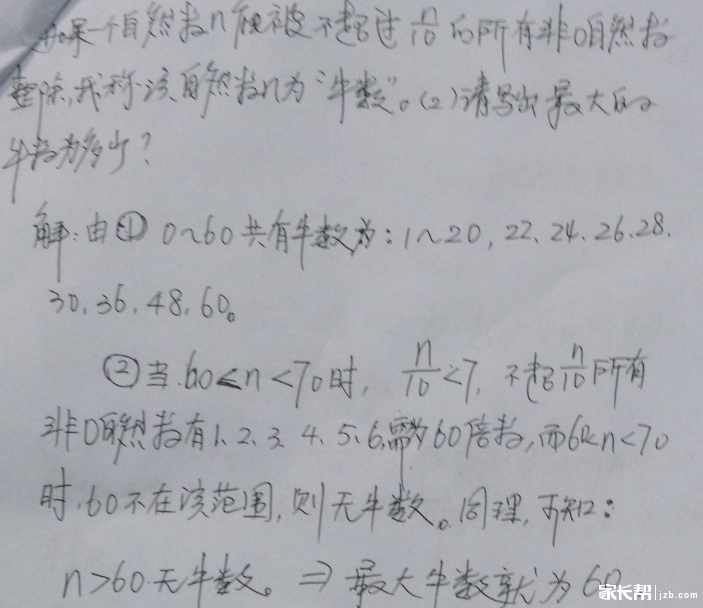 如果一个自然数n能被不超过n/10的所有非0自然数
整除,我称该自然数n为“牛数”。(2)请写出最大的
牛数为多少?
解:由① 0~60共有牛数为:1~20,22、24、26、28、
30、36、48、60。
②当60≤n<70时, n/10<7, 不超n/10所有
非0自然数有1、2、3、4、5、6,需为60倍数,而60<n<70
时,60不在该范围,则无牛数。同理,可知:
n>60无牛数。⇒最大牛数就为60
家长帮 jzb.com